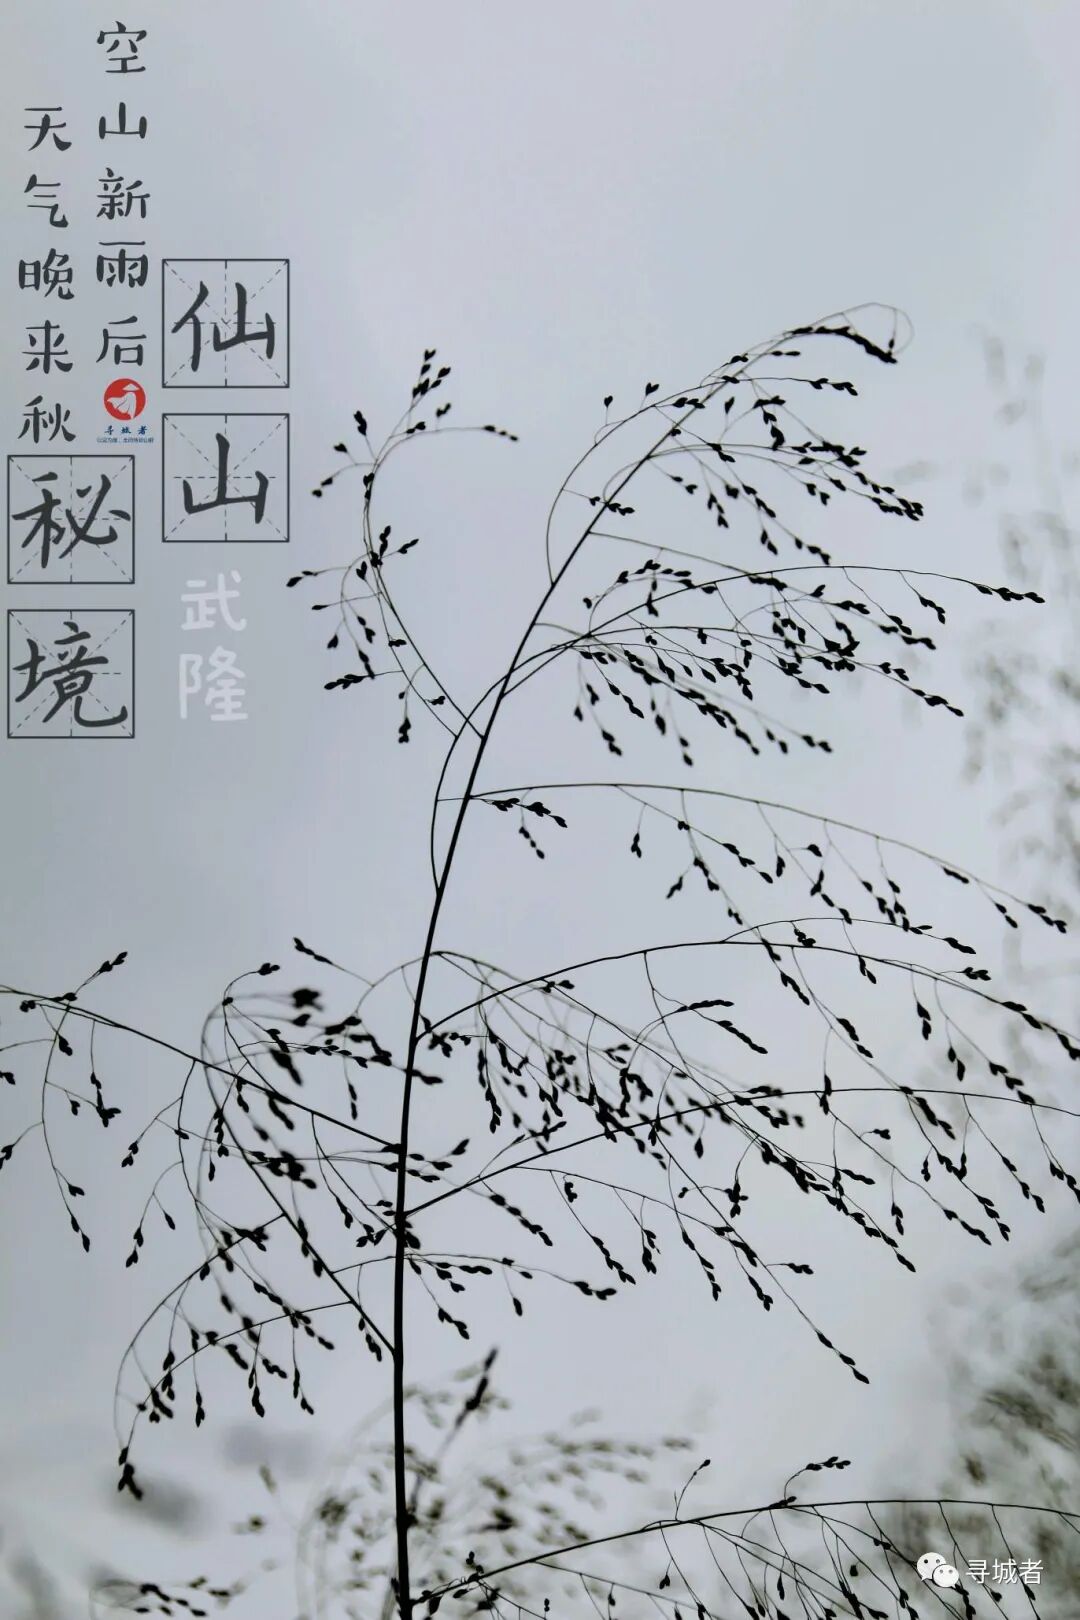 空山新雨后
天气晚来秋
仙山
秘境
武隆
寻城者
寻城者